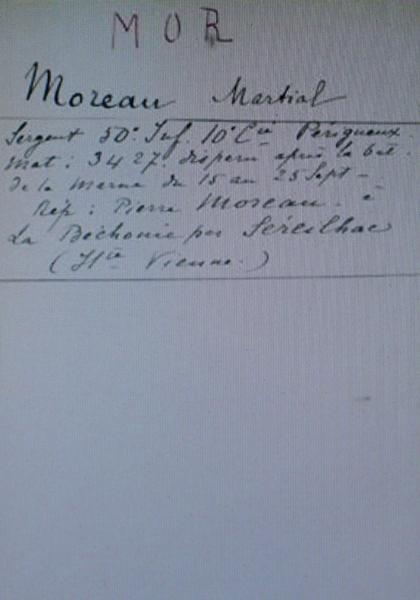 MOR
Moreau Martial
Sergent 50e Inf. 10e Cie Périgueux
Mat : 3427. disparu après la bat.
de la Marne du 15 au 25 Sept -
Rép : Pierre Moreau. à
La Béchonie par Séreilhac
(Hte Vienne.)